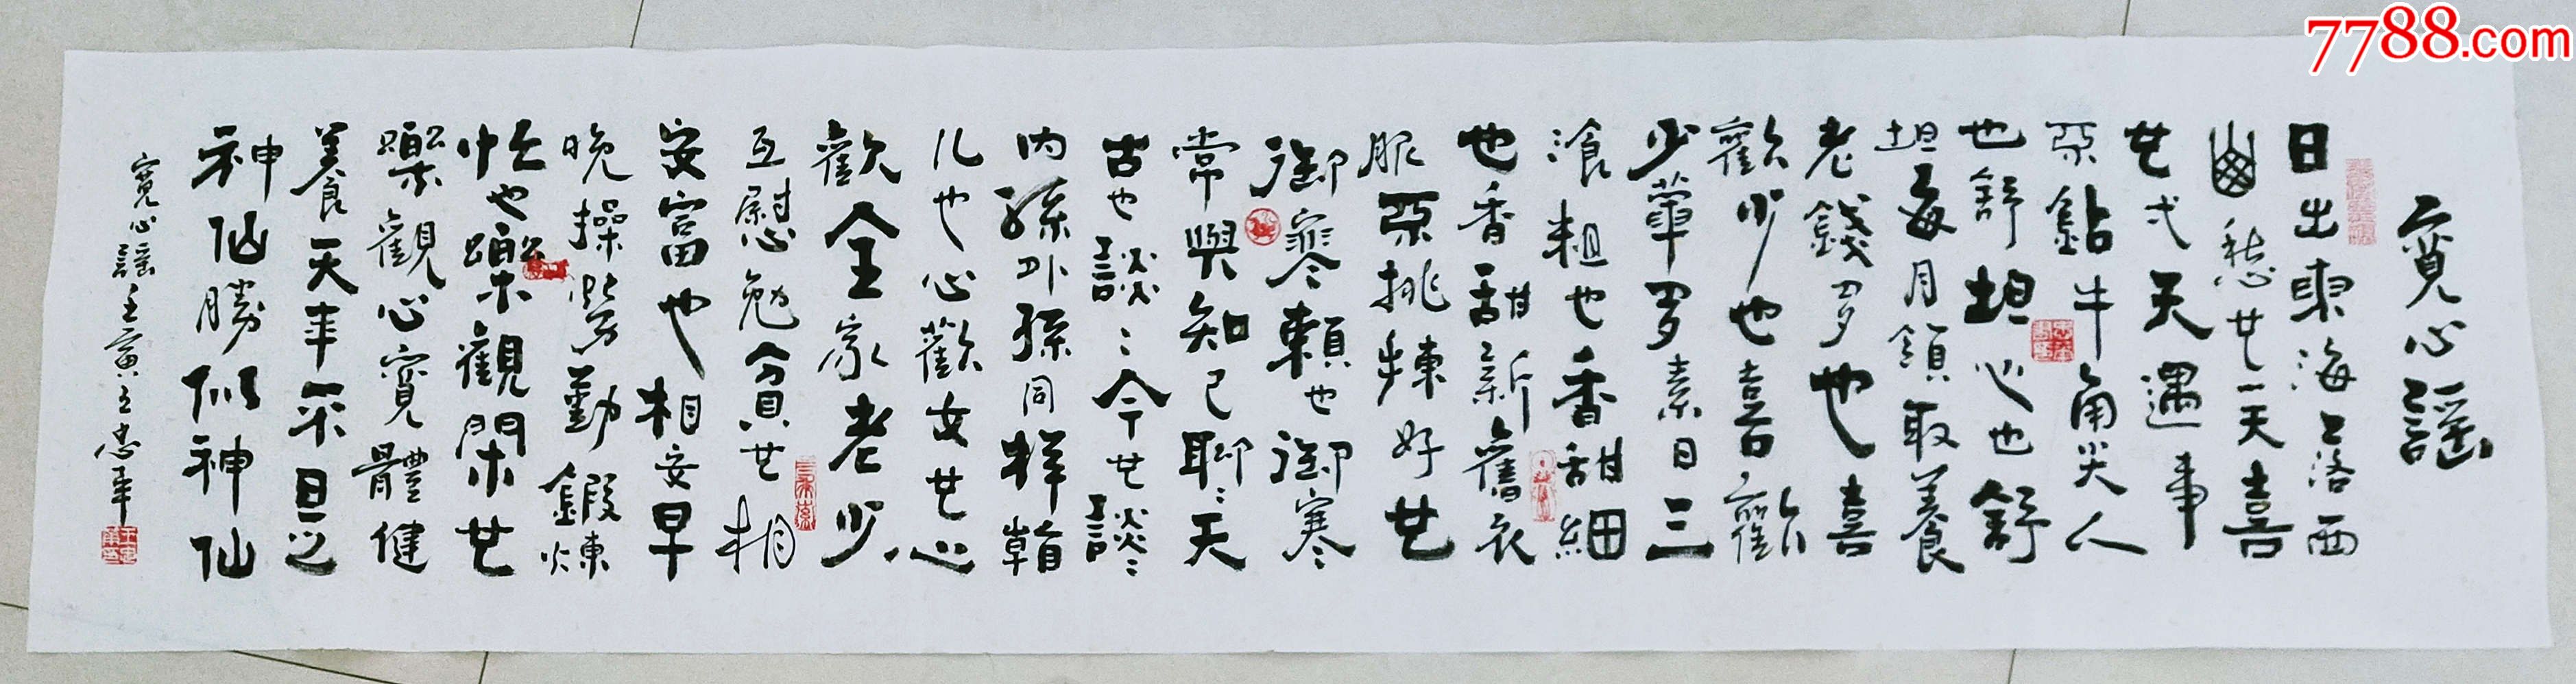 7788.com
寬心謠
日出東海落西
山愁也一天喜
也弌天遇事
不鉆牛角尖人
也舒坦心也舒
坦每月領取養
老錢多也喜
歡少也喜歡
少葷多素日三
飡粗也香甜細
也香甜新舊衣
服不挑揀好也
御寒賴也御寒
常與知己聊〻天
古也談〻今也談〻
內孫外孫同樣看
儿也心歡女也心
歡全家老少
互慰勉貧也相
安富也相安早
晚操勞勤鍛煉
忙也樂觀閑也
樂觀心寬體健
養天年不是
神仙勝似神仙
寬心謠壬寅王忠年